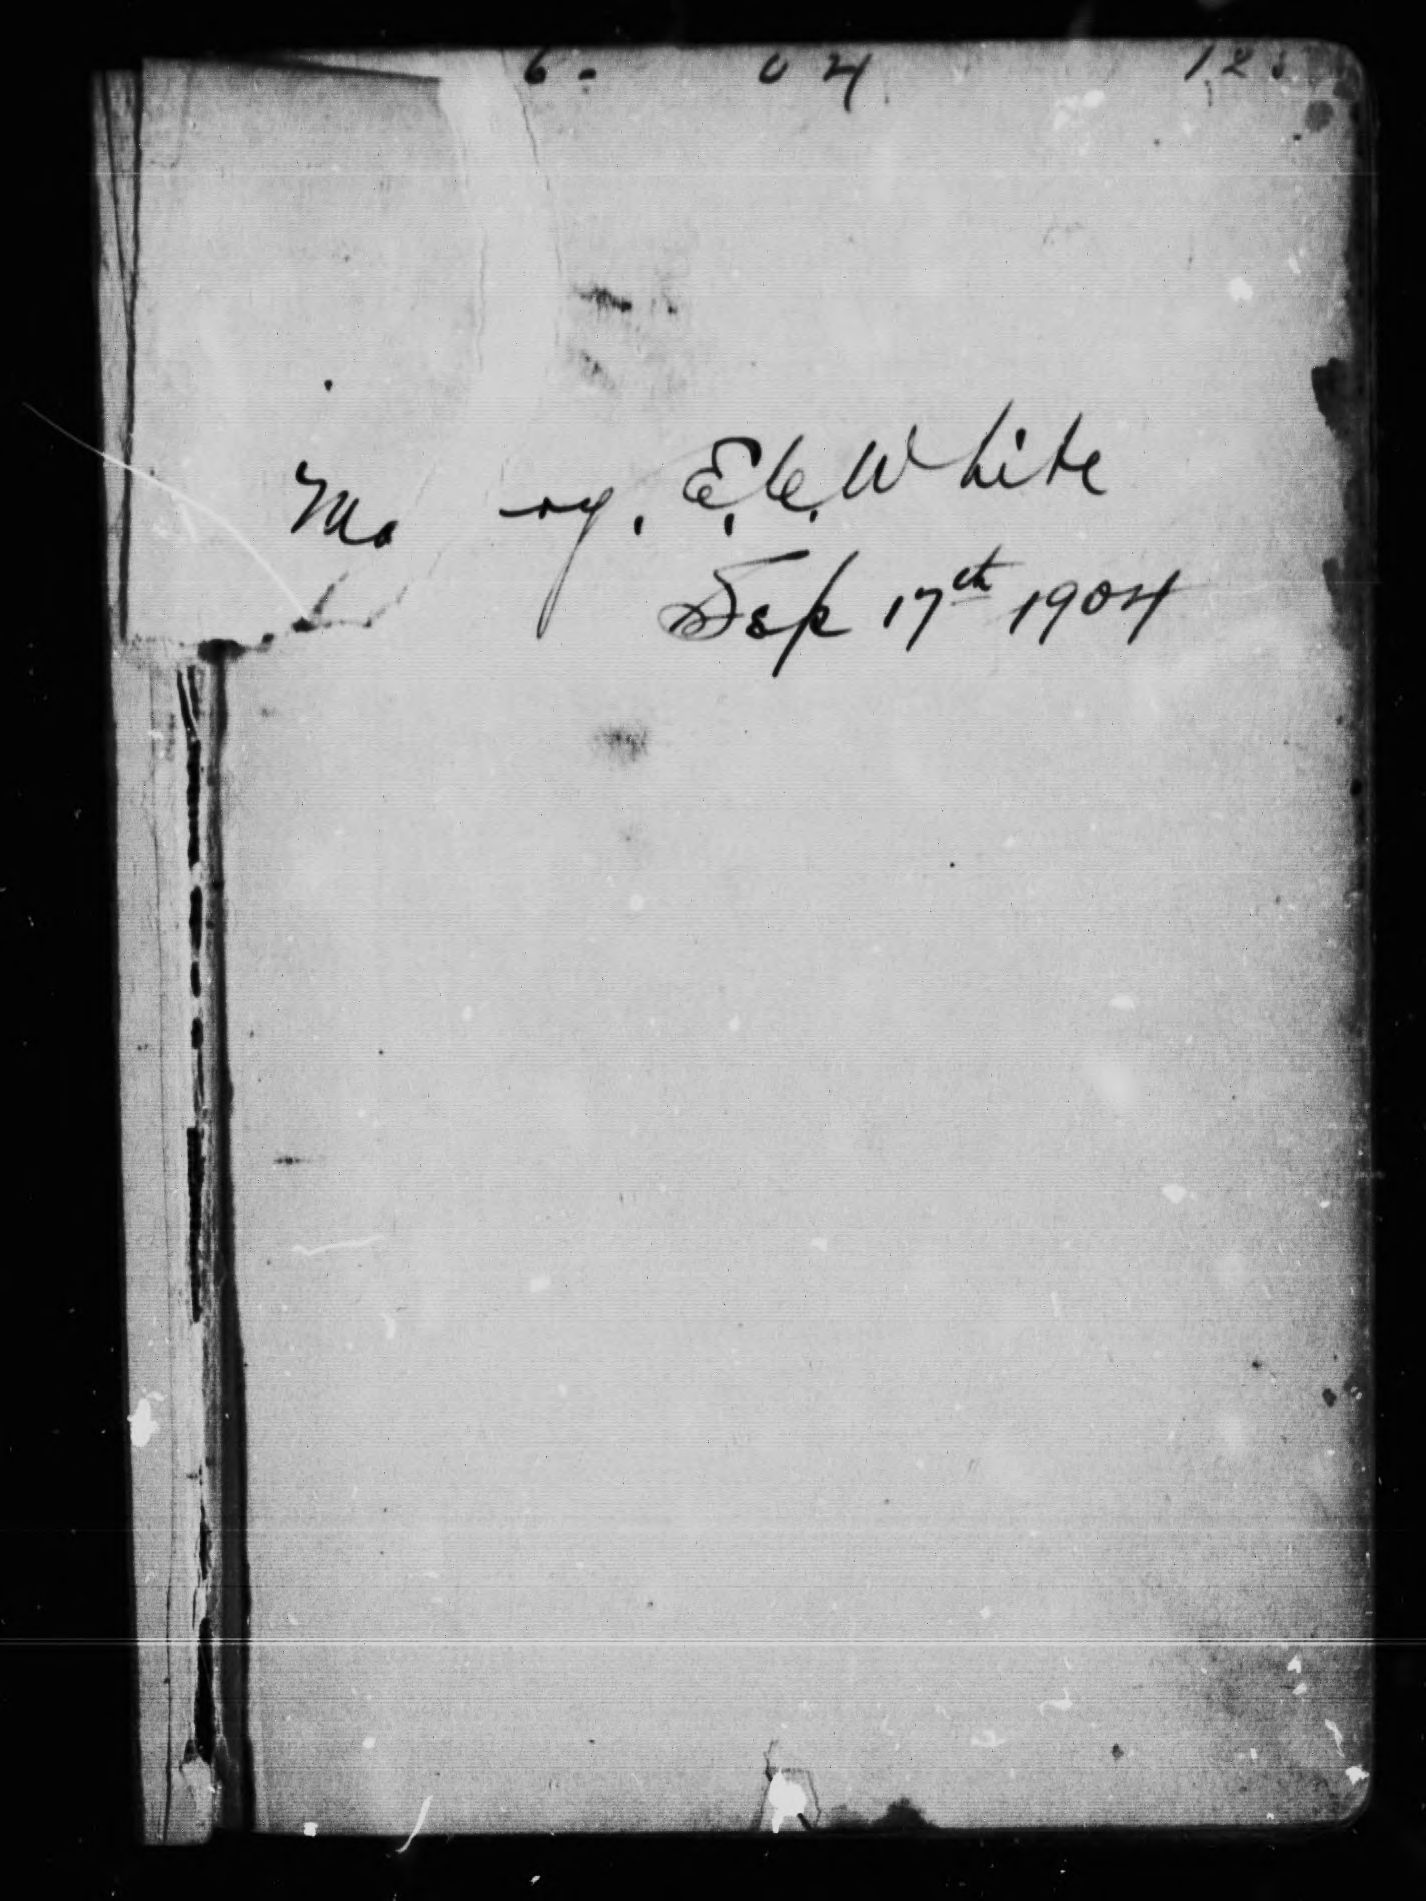 6. 04 12
Ma ry. E. C. White
Sep 17th 1904